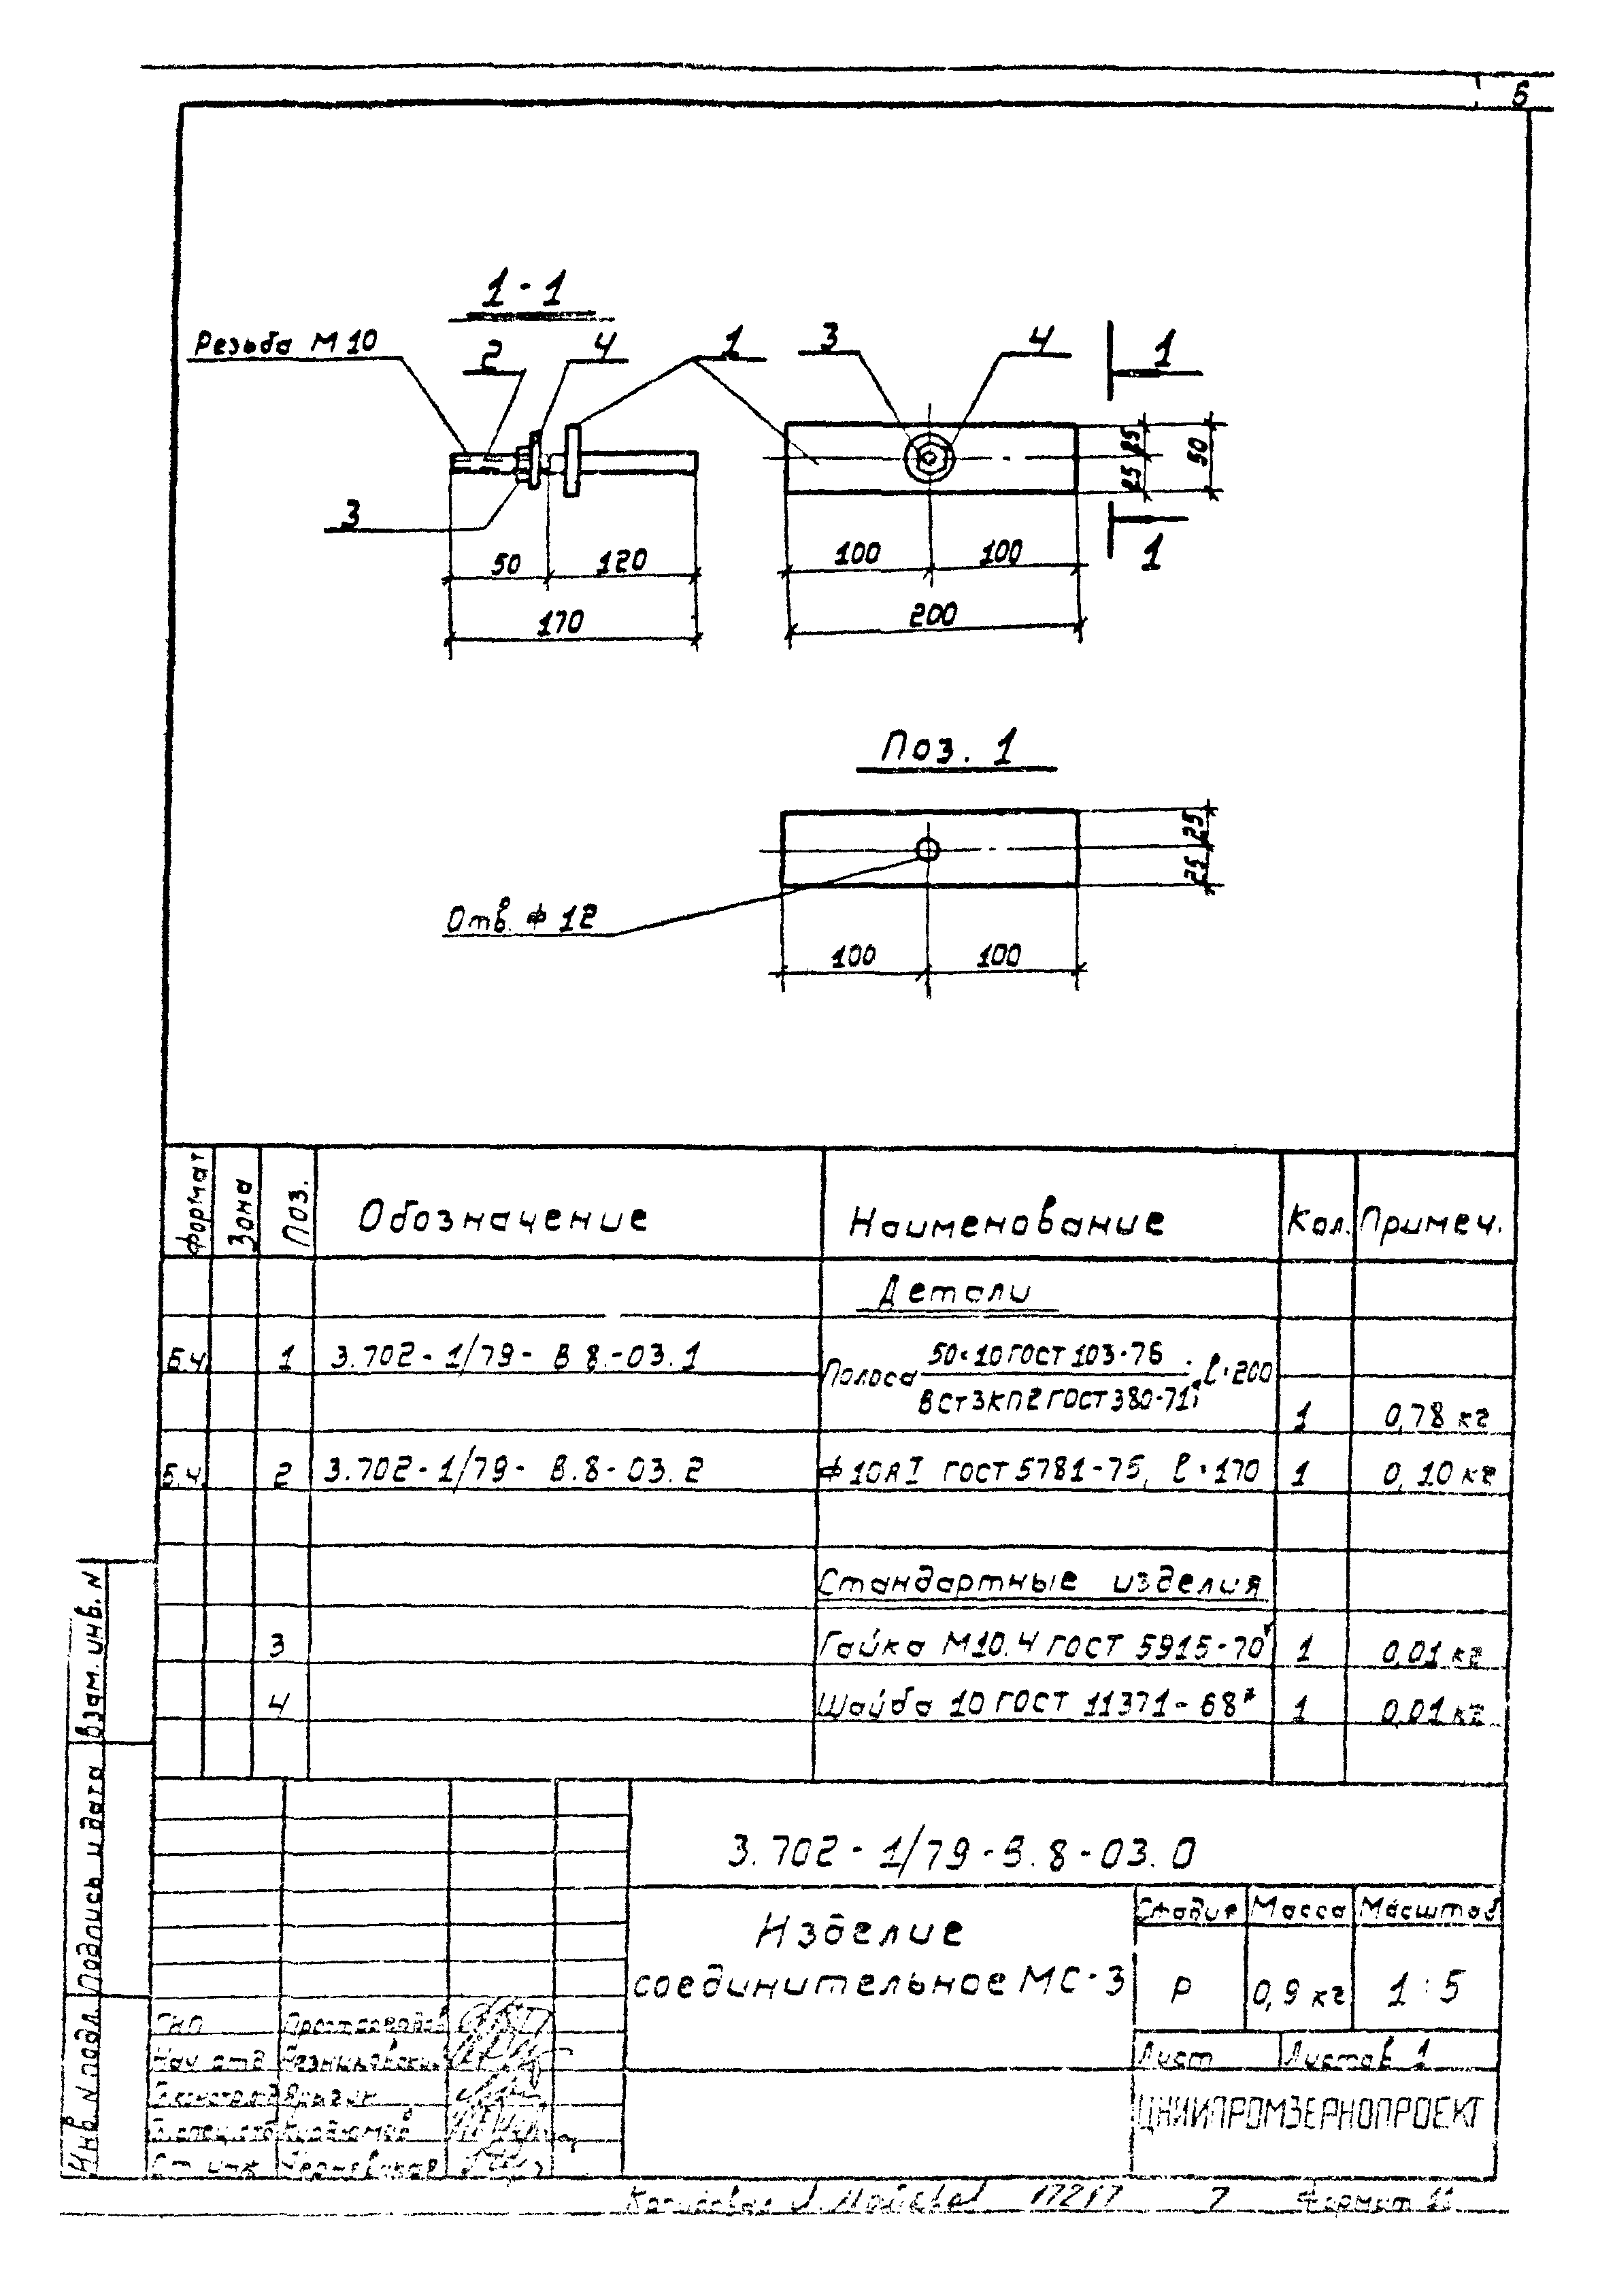 6
1-1
Резьба М10
2
4
1
3
4
1
3
25
25
50
50
120
170
100
100
200
1
Поз. 1
Отв. ф 12
25
25
100
100
Формат
Зона
Поз.
Обозначение
Наименование
Кол.
Примеч.
Детали
Б.ч.
1
3.702-1/79- В 8.-03.1
Полоса
50×10 ГОСТ 103-76
ВСт3КП2 ГОСТ 380-71*
; ℓ=200
1
0,78 кг
Б.ч.
2
3.702-1/79- В.8-03.2
ф10АI ГОСТ 5781-75, ℓ=170
1
0,10 кг
Стандартные изделия
3
Гайка М10.4 ГОСТ 5915-70*
1
0,01 кг
4
Шайба 10 ГОСТ 11371-68*
1
0,01 кг
Взам. инв. N
Подпись и дата
Инв. N подл
3.702-1/79-В.8-03.0
Изделие
соединительное МС-3
Стадия
Масса
Масштаб
Р
0,9 кг
1:5
Лист
Листов 1
ЦНИИПРОМЗЕРНОПРОЕКТ
Нач отд
Ст инж
Копировал
17217
7
Формат 11